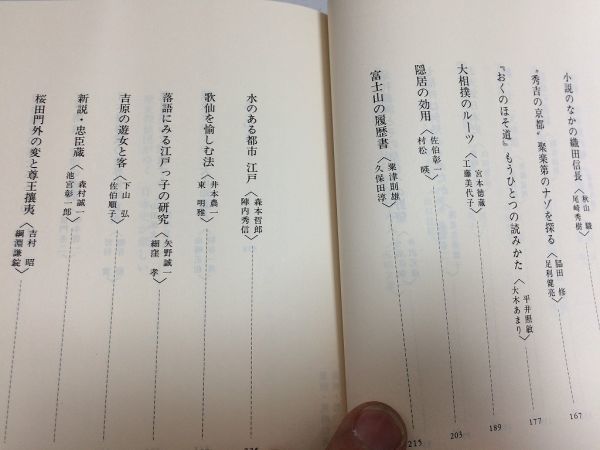 小説のなかの織田信長〈秋山 駿 尾崎秀樹〉 167
“秀吉の京都”聚楽第のナゾを探る〈脇田 修 足利健亮〉 177
『おくのほそ道』もうひとつの読みかた〈平井照敏 大木あまり〉 189
大相撲のルーツ〈宮本徳蔵 工藤美代子〉 203
隠居の効用〈佐伯彰一 村松 暎〉 215
富士山の履歴書〈粟津則雄 久保田淳〉
水のある都市 江戸〈森本哲郎 陣内秀信〉
歌仙を愉しむ法〈井本農一 東 明雅〉
落語にみる江戸っ子の研究〈矢野誠一 細窪 孝〉
吉原の遊女と客〈下山 弘 佐伯順子〉
新説・忠臣蔵〈森村誠一 池宮彰一郎〉
桜田門外の変と尊王攘夷〈吉村 昭 綱淵謙錠〉